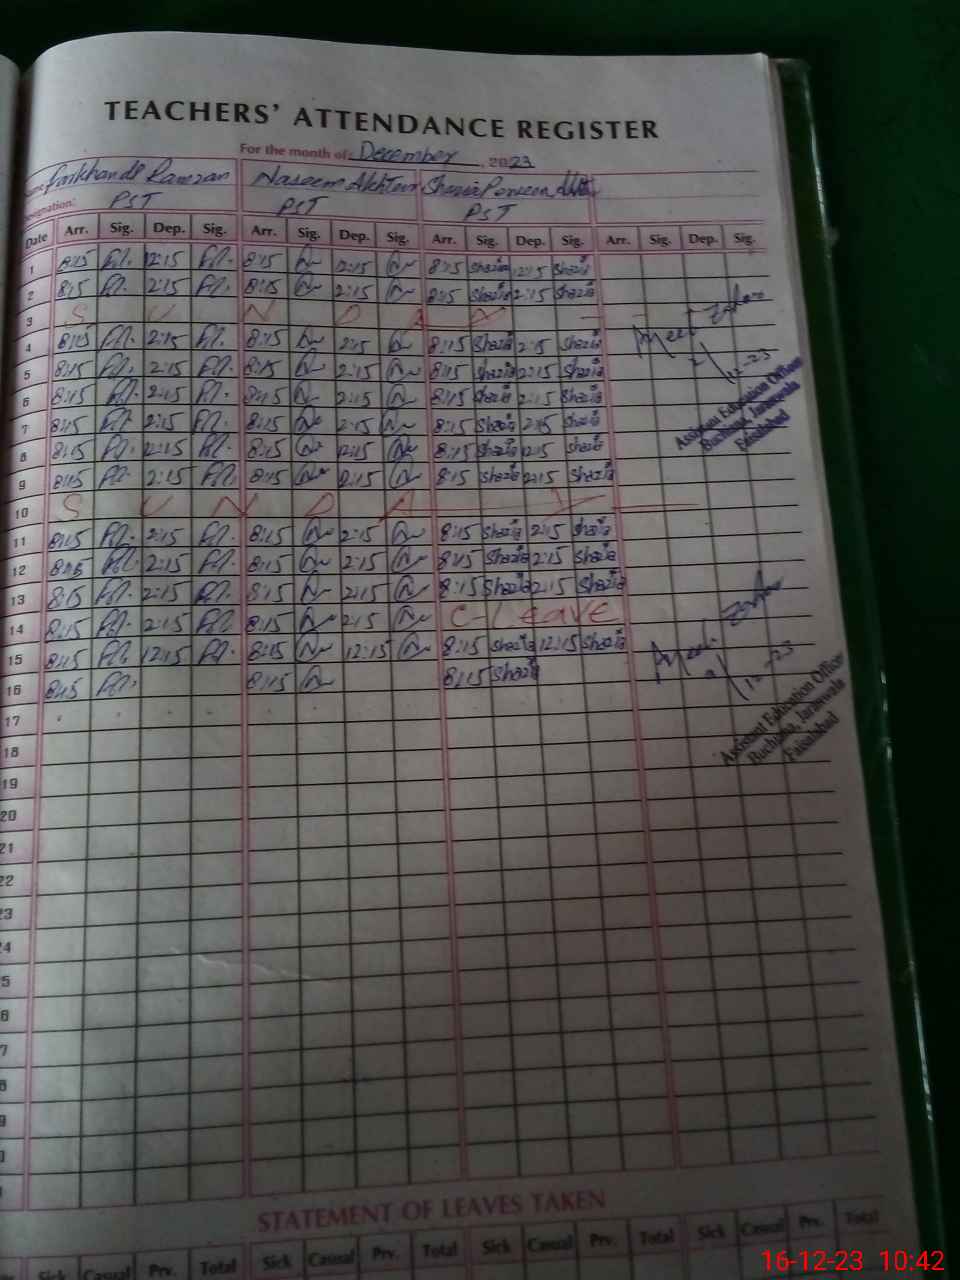 TEACHERS' ATTENDANCE REGISTER
For the month of: December, 2023
Ramzan Naseem Akhter Shazia Parveen
Designation: PST PST PST
Date Arr. Sig. Dep. Sig. Arr. Sig. Dep. Sig. Arr. Sig. Dep. Sig. Arr. Sig. Dep. Sig.
1 8:15 12:15 8:15 12:15 8:15 Shazia 12:15 Shazia
2 8:15 2:15 8:15 2:15 8:15 Shazia 2:15 Shazia
3 S U N D A Y
4 8:15 2:15 8:15 2:15 8:15 Shazia 2:15 Shazia
5 8:15 2:15 8:15 2:15 8:15 Shazia 2:15 Shazia
6 8:15 2:15 8:15 2:15 8:15 Shazia 2:15 Shazia
7 8:15 2:15 8:15 2:15 8:15 Shazia 2:15 Shazia
8 8:15 12:15 8:15 12:15 8:15 Shazia 12:15 Shazia
9 8:15 2:15 8:15 2:15 8:15 Shazia 2:15 Shazia
10 S U N D A Y
11 8:15 2:15 8:15 2:15 8:15 Shazia 2:15 Shazia
12 8:15 2:15 8:15 2:15 8:15 Shazia 2:15 Shazia
13 8:15 2:15 8:15 2:15 8:15 Shazia 2:15 Shazia
14 8:15 2:15 8:15 2:15 C-Leave
15 8:15 12:15 8:15 12:15 8:15 Shazia 12:15 Shazia
16 8:15 8:15 8:15 Shazia
17
18
19
20
21
22
23
24
Assistant Education Officer
Buchiana, Jaranwala
Faisalabad
Assistant Education Officer
Buchiana, Jaranwala
Faisalabad
STATEMENT OF LEAVES TAKEN
Sick Casual Prv. Total Sick Casual Prv. Total Sick Casual Prv. Total Sick Casual Prv. Total
16-12-23 10:42